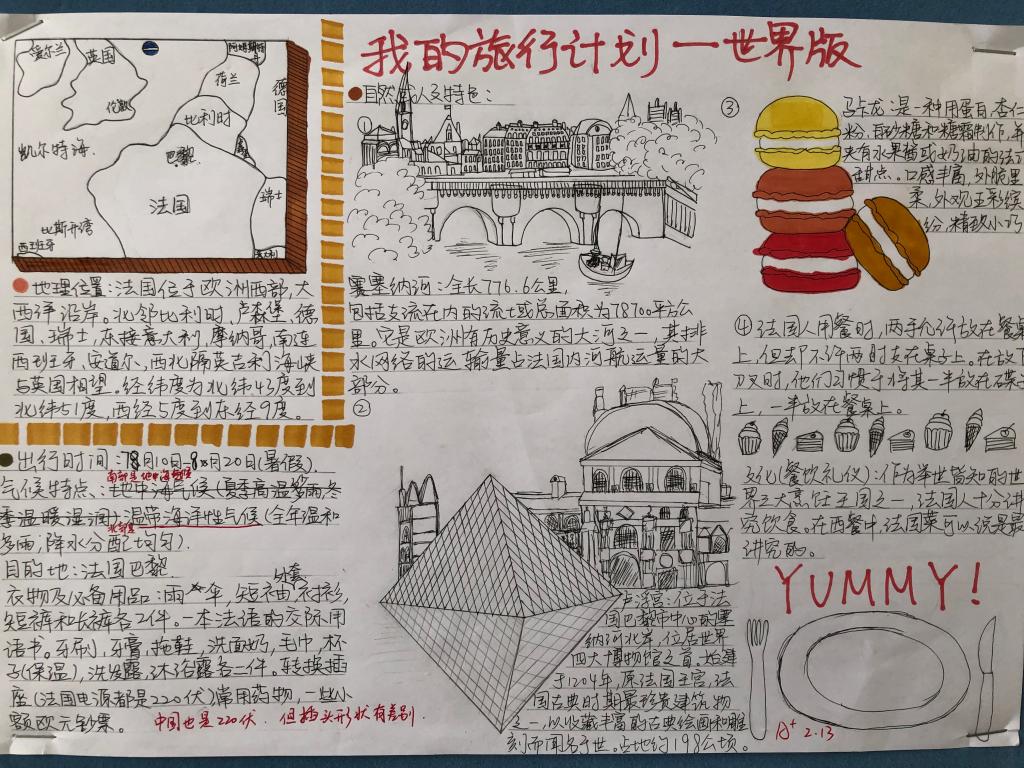 我的旅行计划一世界版
爱尔兰
英国
伦敦
阿姆斯特
荷兰
德国
比利时
凯尔特海
巴黎
法国
瑞士
比斯开湾
西班牙
意大利
地理位置:法国位于欧洲西部,大
西洋沿岸。北邻比利时、卢森堡、德
国、瑞士,东接意大利,摩纳哥,南连
西班牙、安道尔,西北隔英吉利海峡
与英国相望。经纬度为北纬42度到
北纬51度,西经5度到东经9度。
出行时间:7月10日-8月20日(暑假)。
南部是地中海气候
气候特点:地中海气候(夏季高温 冬
季温暖湿润);温带海洋性气候(全年温和
北部是
多雨;降水分配均匀).
目的地:法国巴黎
外套
衣物及必备用品:雨伞,短袖,衬衫,
短裤和长裤各2件。一本法语的交际用
语书。牙刷,牙膏,拖鞋,洗面奶,毛巾,杯
子(保温),洗发露,沐浴露各一件。转换插
座(法国电源都是220伏)常用药物,一些小
额欧元钞票。
中国也是220伏.但插头形状有差别.
自然 人文特色:
①
赛塞纳河:全长776.6公里,
包括支流在内的流域总面积为78700平方公
里。它是欧洲有历史意义的大河之一,其排
水网络的运输量占法国内河航运量的大
部分。
②
卢浮宫:位于法
国巴黎市中心的塞
纳河北岸,位居世界
四大博物馆之首。始建
于1204年,原法国王宫,法
国古典时期最珍贵建筑物
之一,以收藏丰富的古典绘画和雕
刻而闻名于世。占地约198公顷。
③
马卡龙:是一种用蛋白、杏仁
粉、白砂糖和糖霜制作,并
夹有水果酱或奶油的法式
甜点。口感丰富,外脆里
柔,外观五彩缤
纷,精致小巧
④法国人用餐时,两手允许放在餐桌
上,但却不许两肘支在桌子上。在放下
刀叉时,他们习惯于将其一半放在碟子
上,一半放在餐桌上。
文化(餐饮礼仪):作为举世皆知的世
界三大烹饪王国之一,法国人十分讲
究饮食。在西餐中,法国菜可以说是最
讲究的。
YUMMY!
A+ 2.13